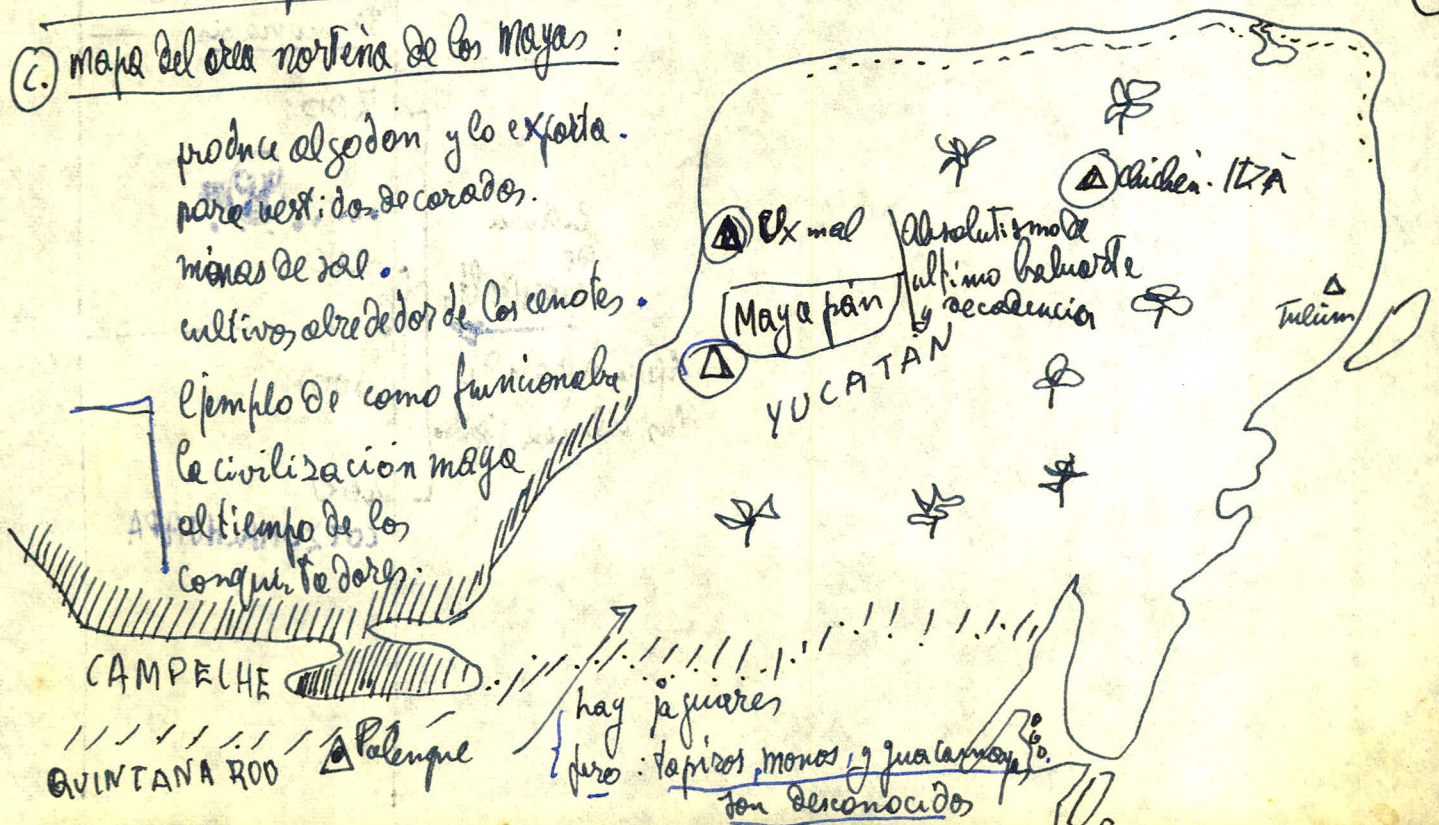 C. mapa del area norteña de los Mayas :
produce algodón y lo exporta.
para vestidos decorados.
minas de sal.
cultivos alrededor de los cenotes.
ejemplo de como funcionaba
la civilización maya
al tiempo de los
conquistadores.
Chichén. ITZÀ
Uxmal
Absolutismo de
ultimo baluarte
y decadencia
Mayapán
Tulum
YUCATÁN
CAMPECHE
QUINTANA ROO
Palenque
hay jaguares
pero : tapiros, monos, y guacamayas
son desconocidos